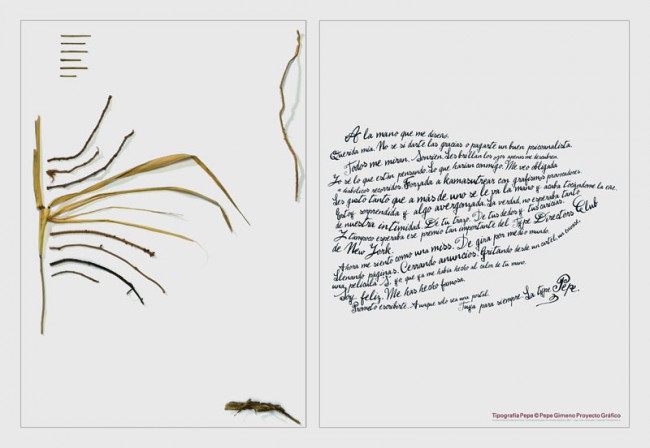 A la mano que me diseñó.
Querida mía. No se si darte las gracias o pagarte un buen psicoanalista.
Todos me miran. Sonríen. Les brillan los ojos apenas me descubren.
Yo se lo que están pensando. Lo que harían conmigo. Me veo obligada
a diabólicos recorridos. Forzada a kamasutrear con grafismos provocadores.
Les gusto tanto que a más de uno se le va la mano y acaba tocándome la
Estoy sorprendida y algo avergonzada. La verdad, no esperaba tanto
de nuestra intimidad. De tu trazo. De tus dedos y tus caricias.
Y tampoco esperaba ese premio tan importante del Type Directors Club
de New York.
Ahora me siento como una miss. De gira por medio mundo.
Llenando páginas. Cerrando anuncios. Gritando desde un cartel, un
una película. Sí, yo que ya me había hecho al calor de tu mano.
Soy feliz. Me has hecho famosa.
Prometo escribirte. Aunque sólo sea una postal.
Tuya para siempre. La type Pepe.
Tipografía Pepe © Pepe Gimeno Proyecto Gráfico